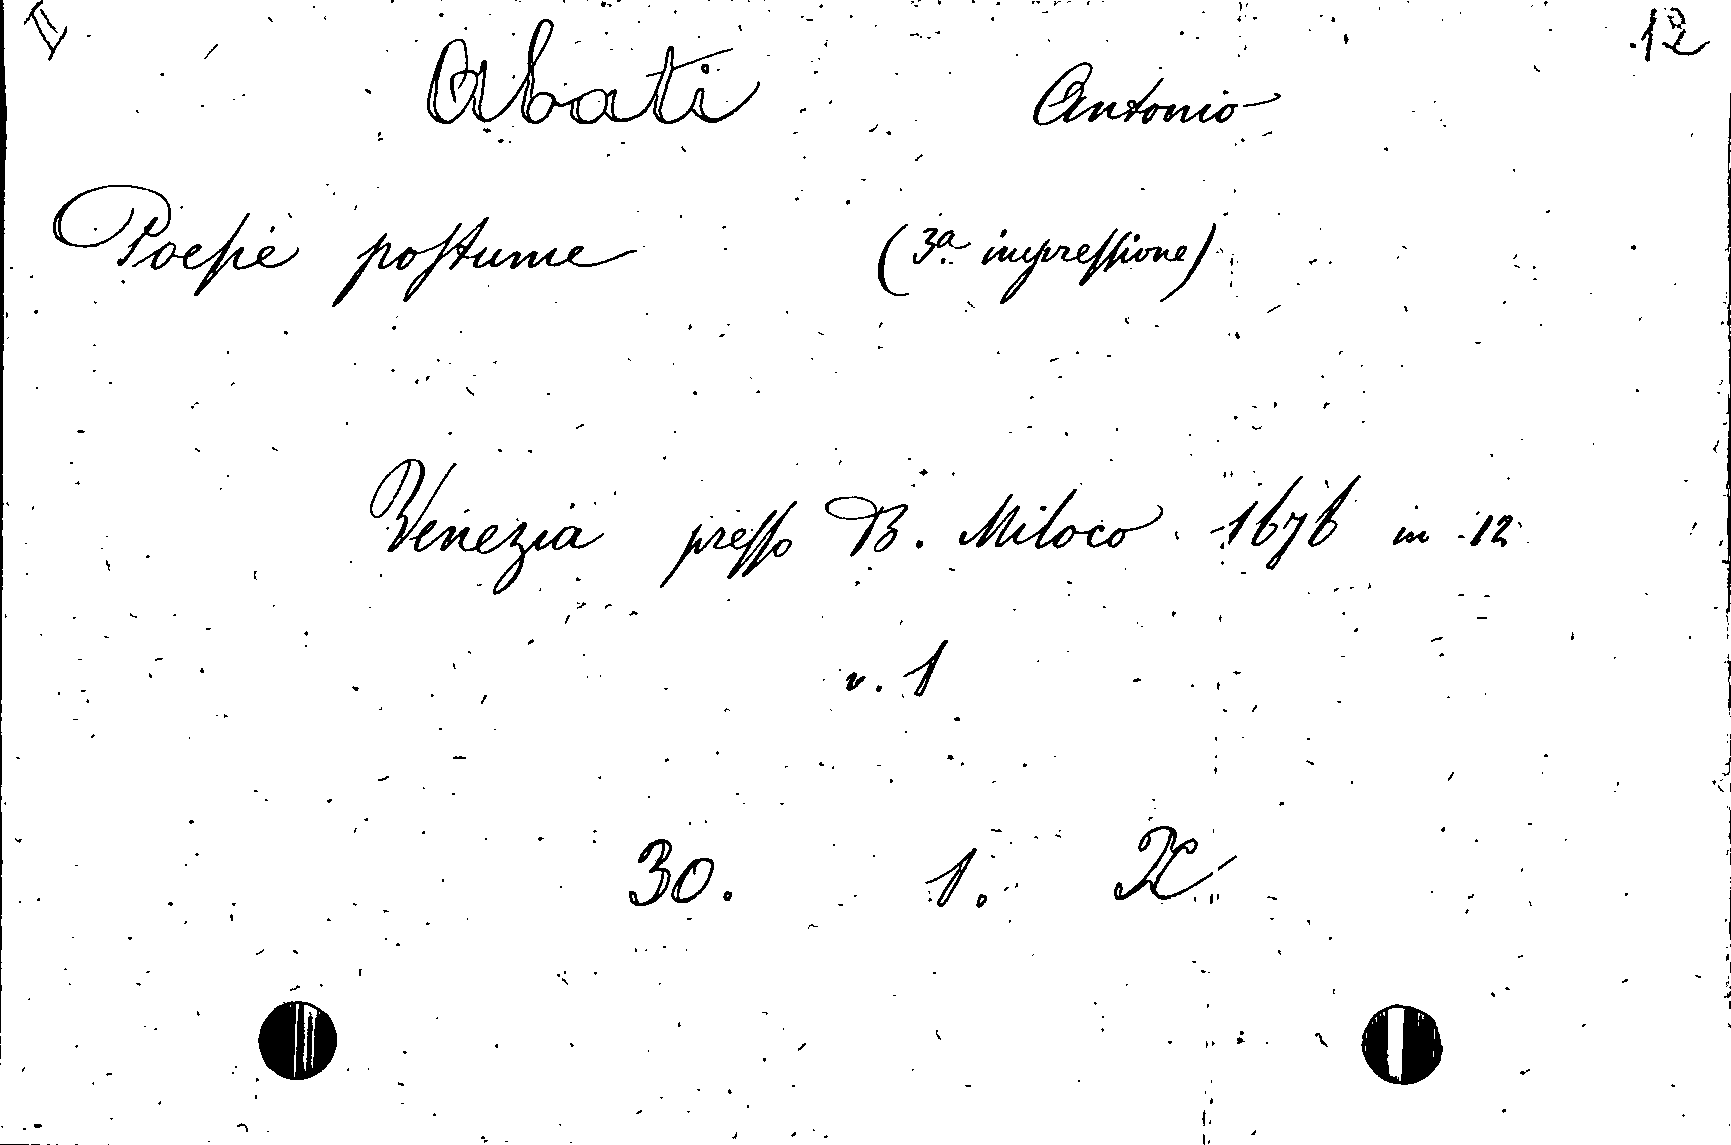 II
12
Abati Antonio
Poesie postume (3ª impressione)
Venezia presso B. Miloco 1676 in 12
v. 1
30. 1. K